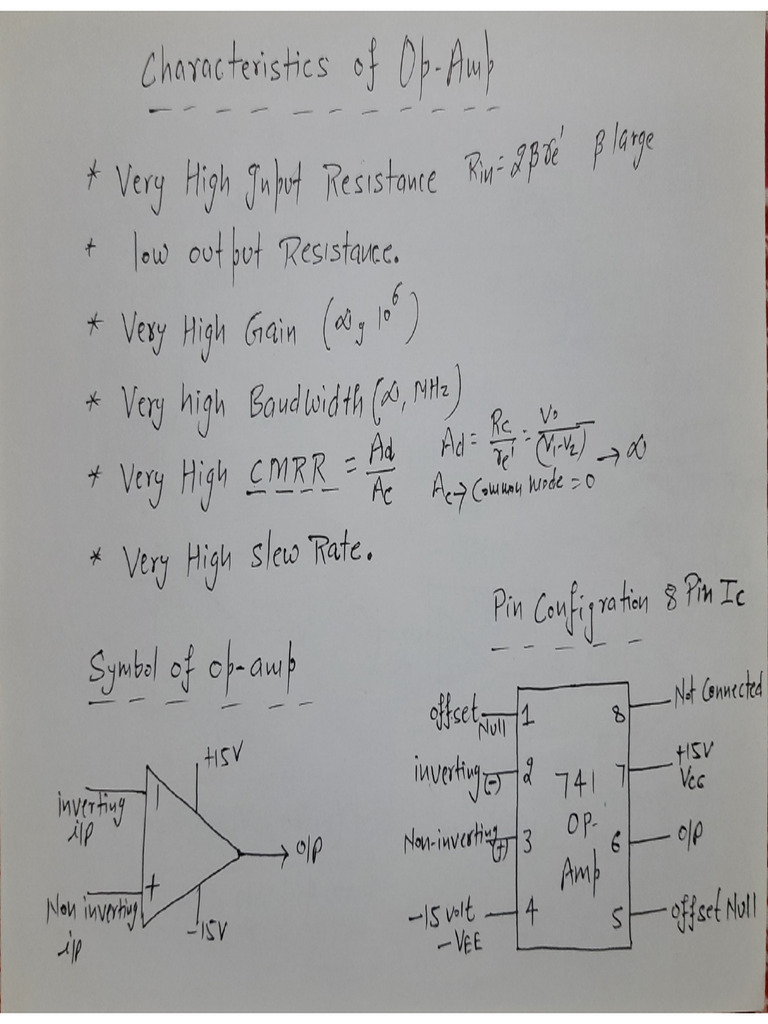 Characteristics of Op-Amp
* Very High Input Resistance Rin = 2βre' β large
* low output Resistance.
* Very High Gain (∞, 10^6)
* Very high Bandwidth (∞, MHz)
* Very High CMRR = Ad/Ac Ad = Rc/re' = Vo/(V1-V2) → ∞
Ac → Common mode = 0
* Very High Slew Rate.
Pin Configration 8 Pin Ic
Symbol of op-amp
+15V
inverting
i/p
-
O/P
+
Non inverting
i/p
-15V
offset Null 1
inverting (-) 2
Non-inverting (+) 3
-15 volt 4
-VEE
741
OP-
Amp
8 Not Connected
7 +15V
Vcc
6 O/P
5 offset Null